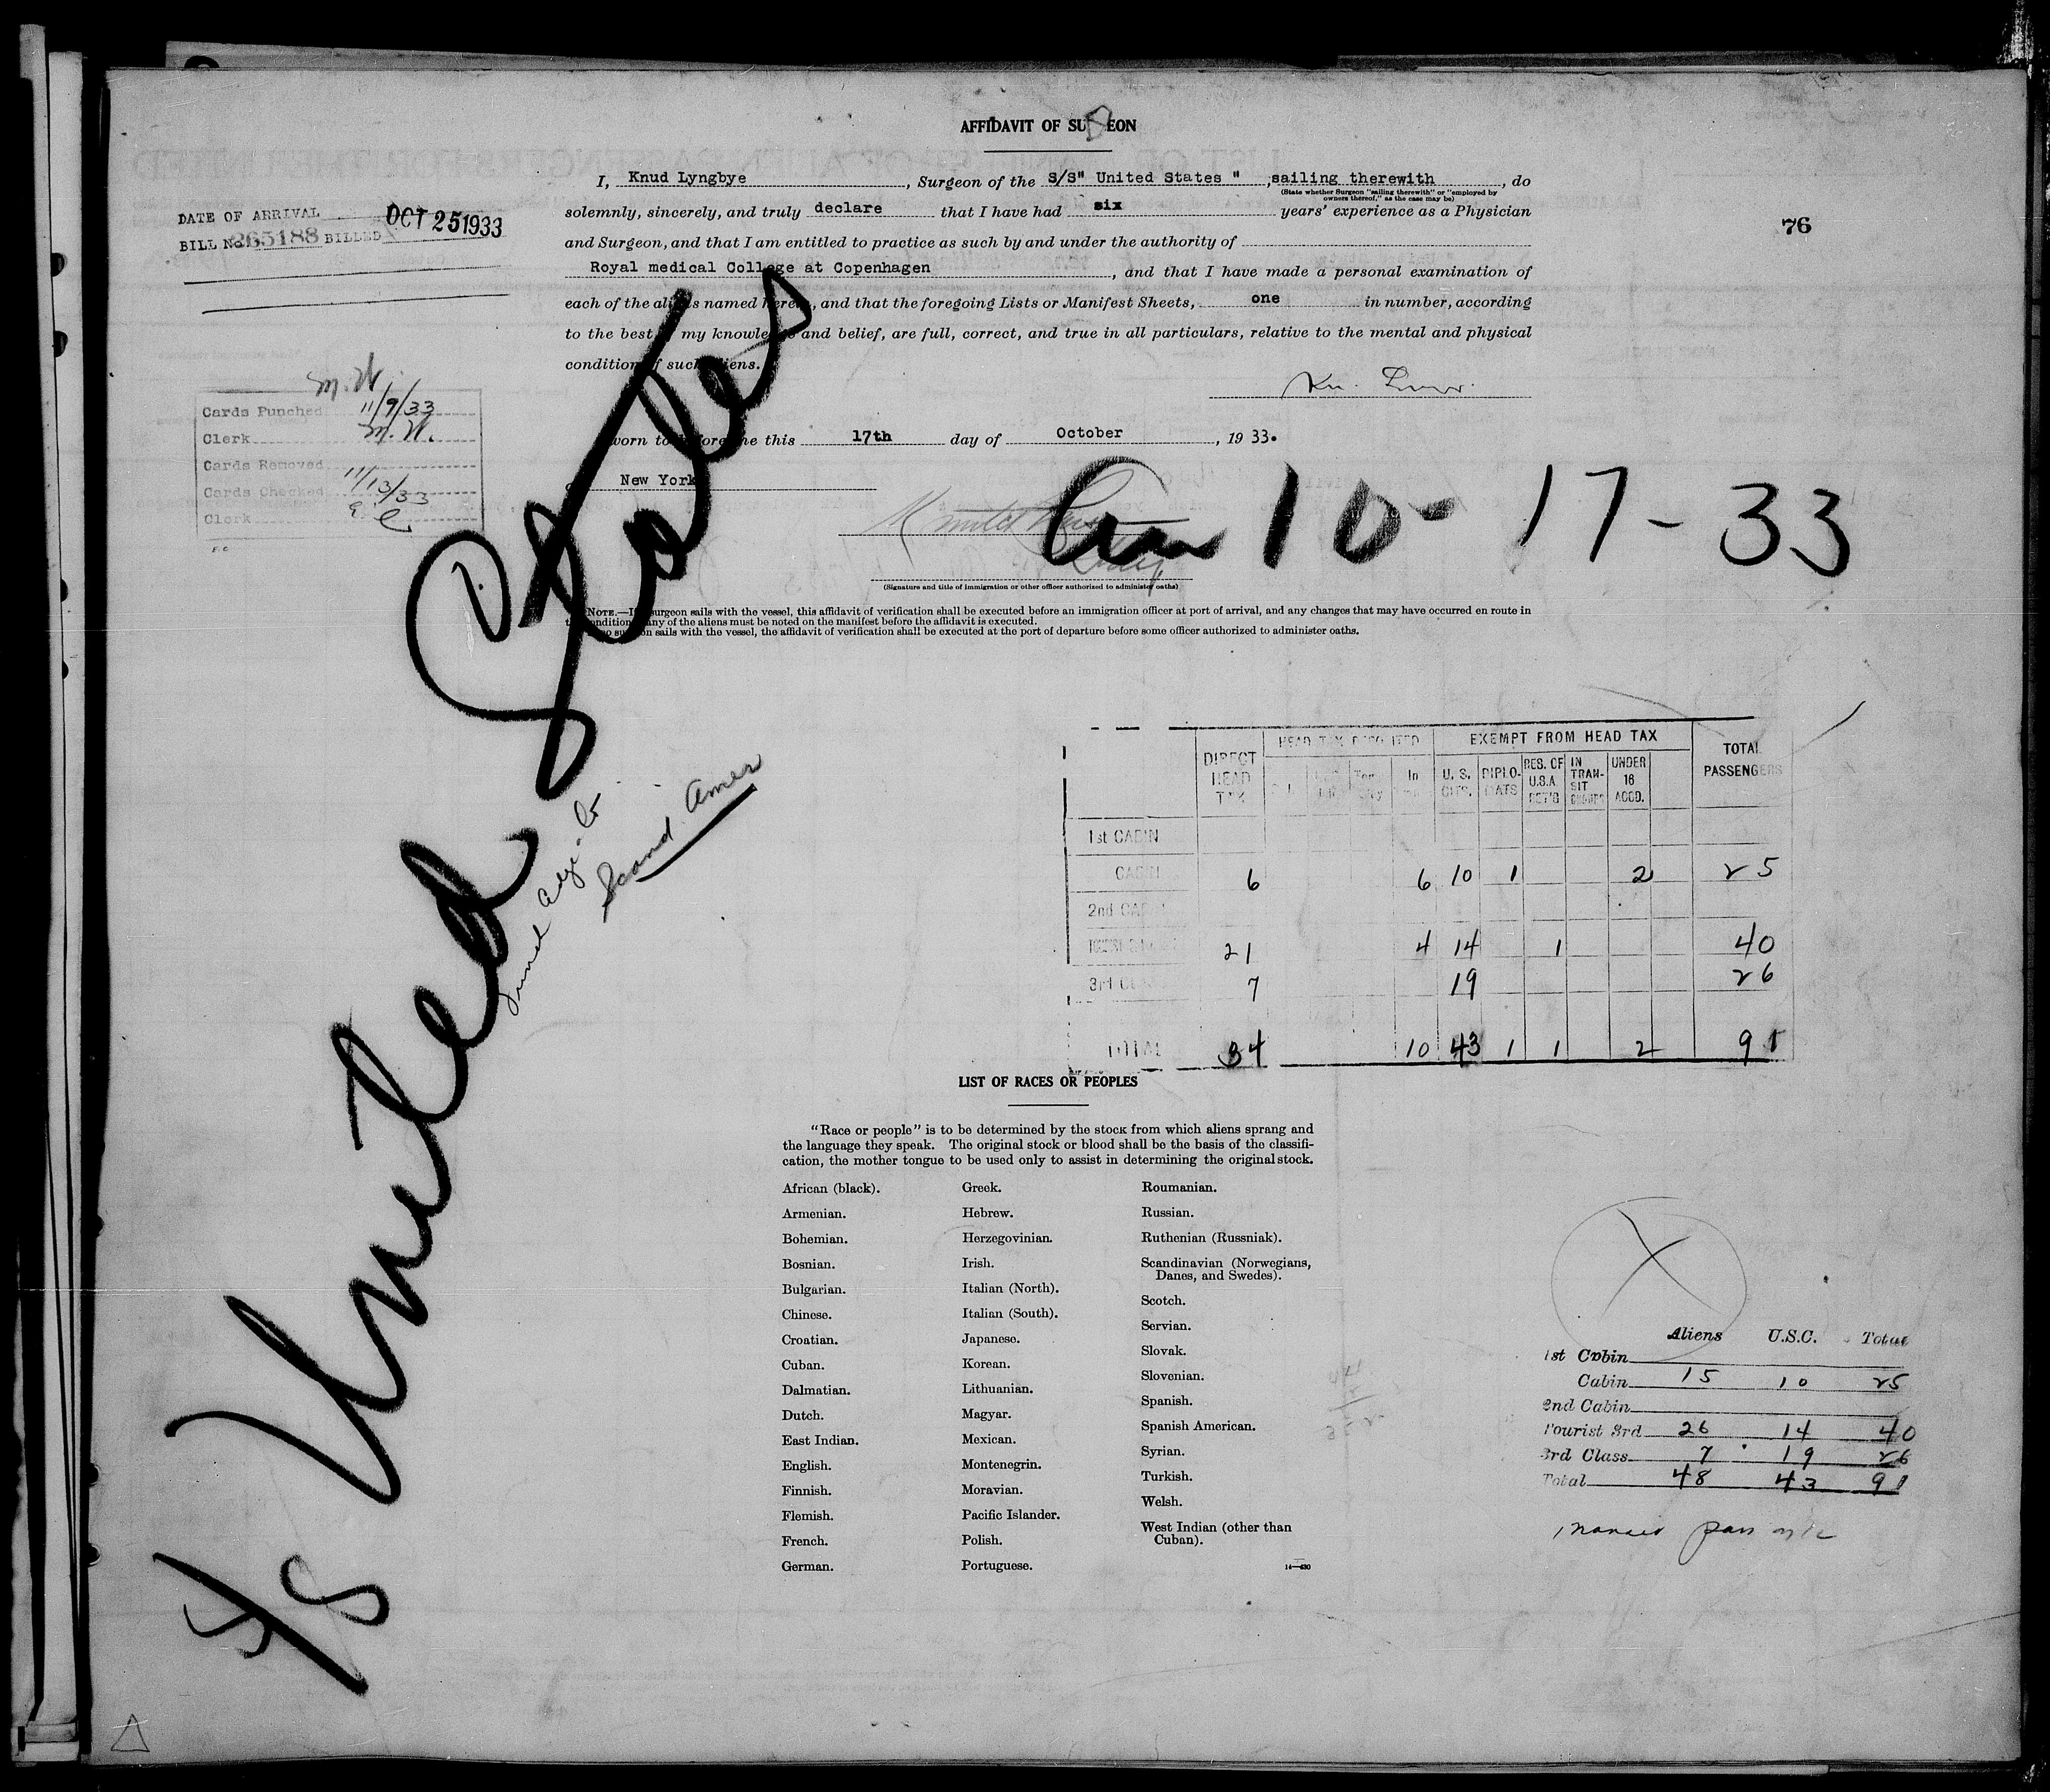 AFFIDAVIT OF SU EON
I, Knud Lyngbye, Surgeon of the S/S" United States " , sailing therewith, do
(State whether Surgeon "sailing therewith" or "employed by owners thereof," as the case may be)
solemnly, sincerely, and truly declare that I have had six years' experience as a Physician
and Surgeon, and that I am entitled to practice as such by and under the authority of
Royal medical College at Copenhagen, and that I have made a personal examination of
each of the aliens named herein, and that the foregoing Lists or Manifest Sheets, one in number, according
to the best of my knowledge and belief, are full, correct, and true in all particulars, relative to the mental and physical
condition of such aliens.
DATE OF ARRIVAL
BILL No. 265188 BILLED OCT 25 1933
76
M.W.
Cards Punched 11/9/33
Clerk M.W.
Cards Removed
Cards Checked 11/13/33
Clerk
F.C
Sworn to before me this 17th day of October, 1933.
New York
10-17-33
(Signature and title of immigration or other officer authorized to administer oaths)
NOTE.—If surgeon sails with the vessel, this affidavit of verification shall be executed before an immigration officer at port of arrival, and any changes that may have occurred en route in
the condition of any of the aliens must be noted on the manifest before the affidavit is executed.
If no surgeon sails with the vessel, the affidavit of verification shall be executed at the port of departure before some officer authorized to administer oaths.
S/S United States
Scand. Amer
DIRECT HEAD TAX HEAD TAX DEPOSITED EXEMPT FROM HEAD TAX TOTAL PASSENGERS
In U.S. CITS. DIPLOMATS RES. OF U.S.A. RET'G IN TRANSIT UNDER 16 ACCD.
1st CABIN
CABIN 6 6 10 1 2 25
2nd CABIN
21 4 14 1 40
3rd 7 19 26
TOTAL 34 10 43 1 1 2 91
LIST OF RACES OR PEOPLES
"Race or people" is to be determined by the stock from which aliens sprang and
the language they speak. The original stock or blood shall be the basis of the classifi-
cation, the mother tongue to be used only to assist in determining the original stock.
African (black).
Armenian.
Bohemian.
Bosnian.
Bulgarian.
Chinese.
Croatian.
Cuban.
Dalmatian.
Dutch.
East Indian.
English.
Finnish.
Flemish.
French.
German.
Greek.
Hebrew.
Herzegovinian.
Irish.
Italian (North).
Italian (South).
Japanese.
Korean.
Lithuanian.
Magyar.
Mexican.
Montenegrin.
Moravian.
Pacific Islander.
Polish.
Portuguese.
Roumanian.
Russian.
Ruthenian (Russniak).
Scandinavian (Norwegians,
Danes, and Swedes).
Scotch.
Servian.
Slovak.
Slovenian.
Spanish.
Spanish American.
Syrian.
Turkish.
Welsh.
West Indian (other than
Cuban).
Aliens U.S.C. Total
1st Cabin
Cabin 15 10 25
2nd Cabin
Tourist 3rd 26 14 40
3rd Class 7 19 26
Total 48 43 91